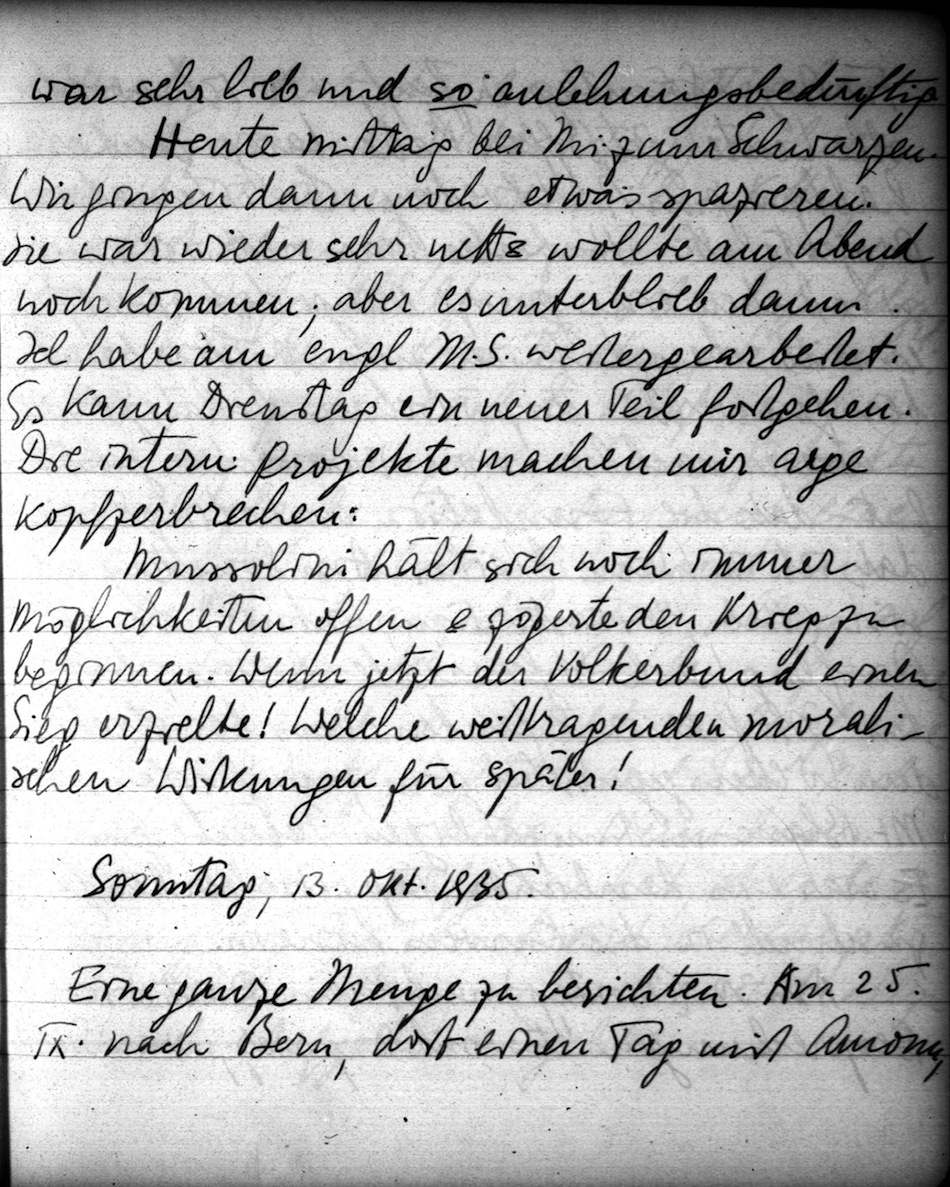 war sehr lieb und so anlehnungsbedürftig
Heute mittag bei Mi. zum Schwarzen.
Wir gingen dann noch etwas spazieren.
sie war wieder sehr nett & wollte am Abend
noch kommen; aber es unterblieb dann.
Ich habe am engl M.S. weitergearbeitet.
Es kann Dienstag ein neuer Teil fortgehen.
Die intern. Projekte machen mir arge
Kopfzerbrechen:
Mussolini hält sich noch immer
Möglichkeiten offen & zögerte den Krieg zu
beginnen. Wenn jetzt der Völkerbund einen
Sieg erzielte! Welche weittragenden morali-
schen Wirkungen für später!
Sonntag, 13. Okt. 1935.
Eine ganze Menge zu berichten. Am 25.
IX. nach Bern, dort einen Tag mit